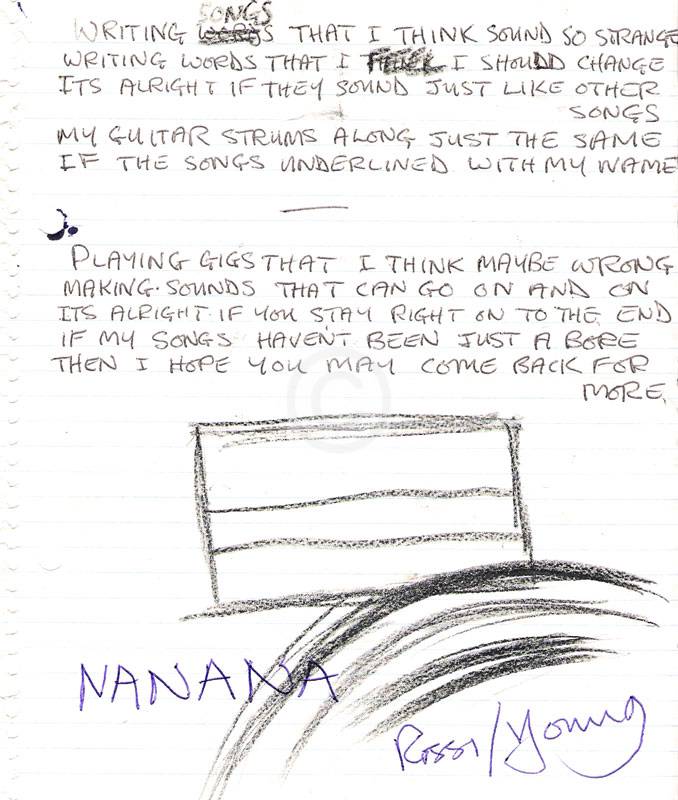 SONGS
WRITING WORDS THAT I THINK SOUND SO STRANGE
WRITING WORDS THAT I THINK I SHOULD CHANGE
ITS ALRIGHT IF THEY SOUND JUST LIKE OTHER
SONGS
MY GUITAR STRUMS ALONG JUST THE SAME
IF THE SONGS UNDERLINED WITH MY NAME
2.
PLAYING GIGS THAT I THINK MAYBE WRONG
MAKING SOUNDS THAT CAN GO ON AND ON
ITS ALRIGHT IF YOU STAY RIGHT ON TO THE END
IF MY SONGS HAVEN'T BEEN JUST A BORE
THEN I HOPE YOU MAY COME BACK FOR
MORE.
NANANA
Rossi/Young